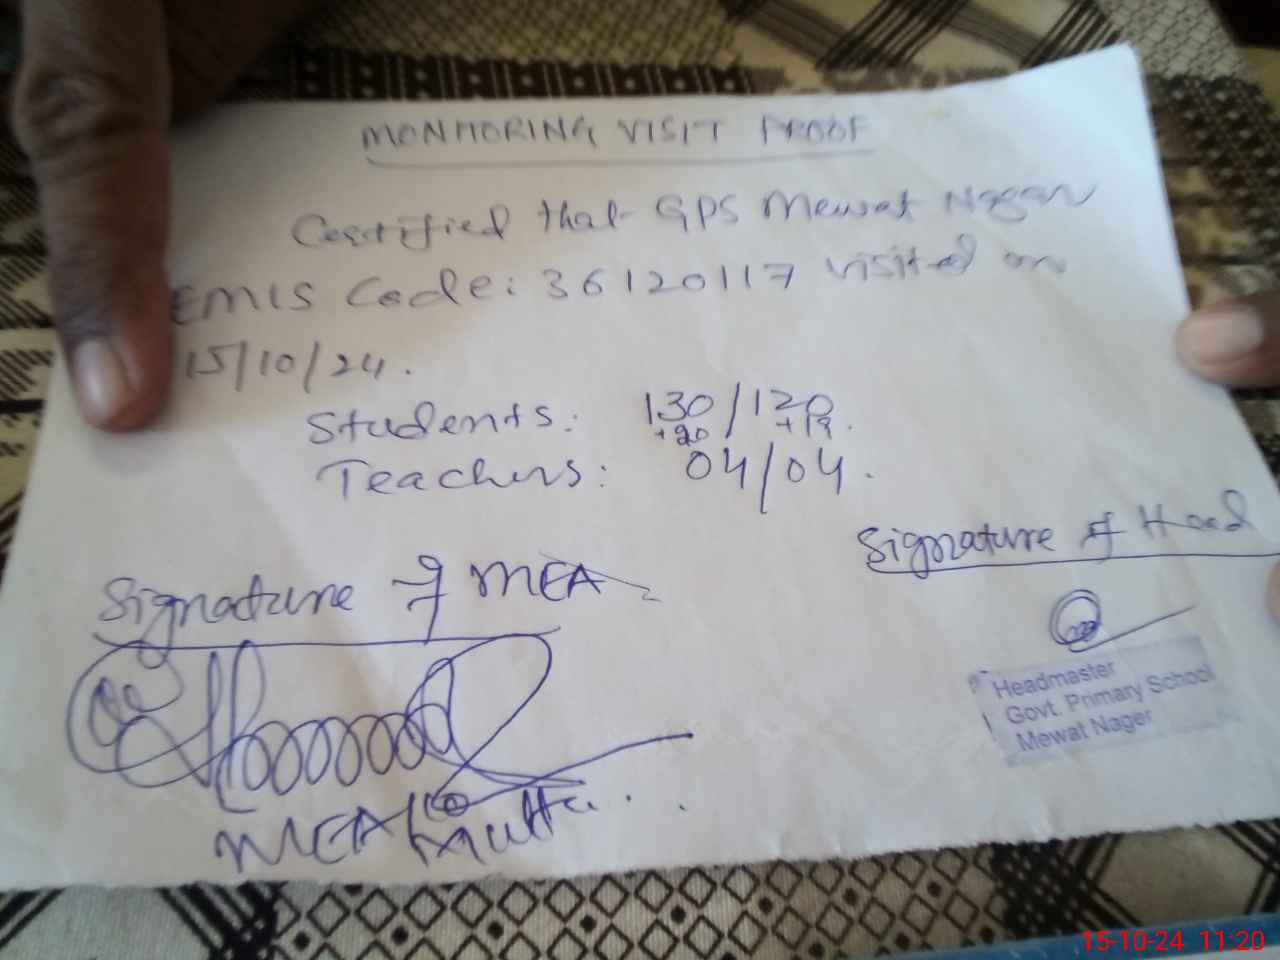 MONITORING VISIT PROOF
Certified that GPS Mewat Nagar
EMIS Code: 36120117 visited on
15/10/24.
Students: 130/120.
+20 +19
Teachers: 04/04.
Signature of Head
Signature of MEA
Headmaster
Govt. Primary School
Mewat Nager
MEA
15-10-24 11:20